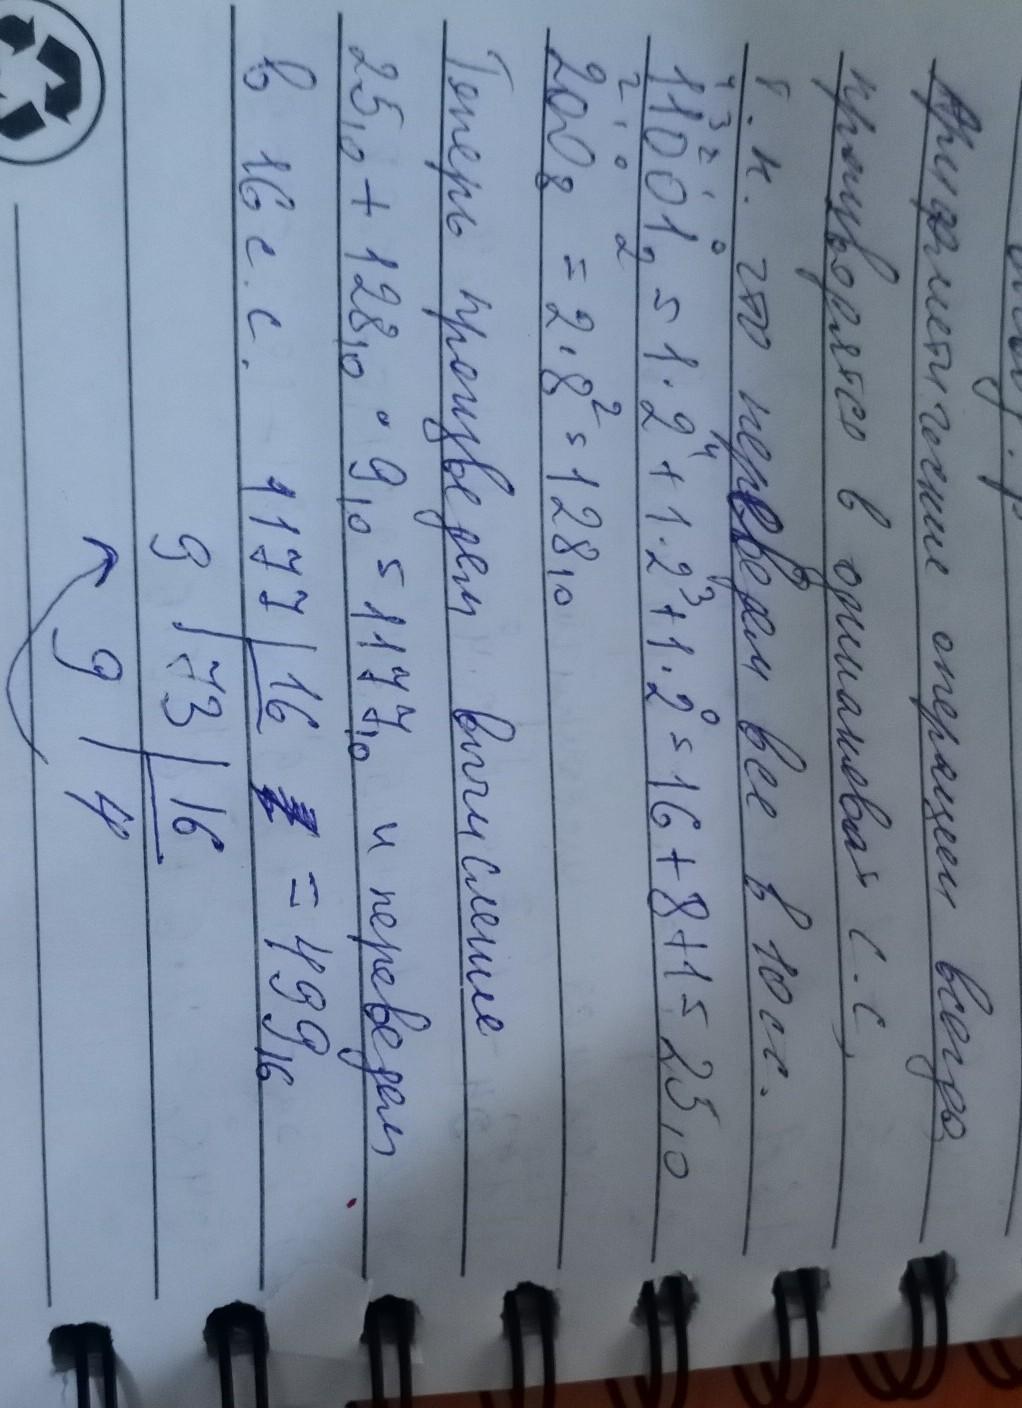 Арифметические операции всегда
в одинаковой с.с,
т.к. это переведем все в 10 сс.
4 3 2 1 0
11001₂ = 1·2⁴ + 1·2³ + 1·2⁰ = 16 + 8 + 1 = 25₁₀
2 1 0 2
200₈ = 2·8² = 128₁₀
Теперь произведем вычисление
25₁₀ + 128₁₀ · 9₁₀ = 1177₁₀ и переведем
в 16 с.с. 1177 | 16 = 499₁₆
9 73 | 16
9 4